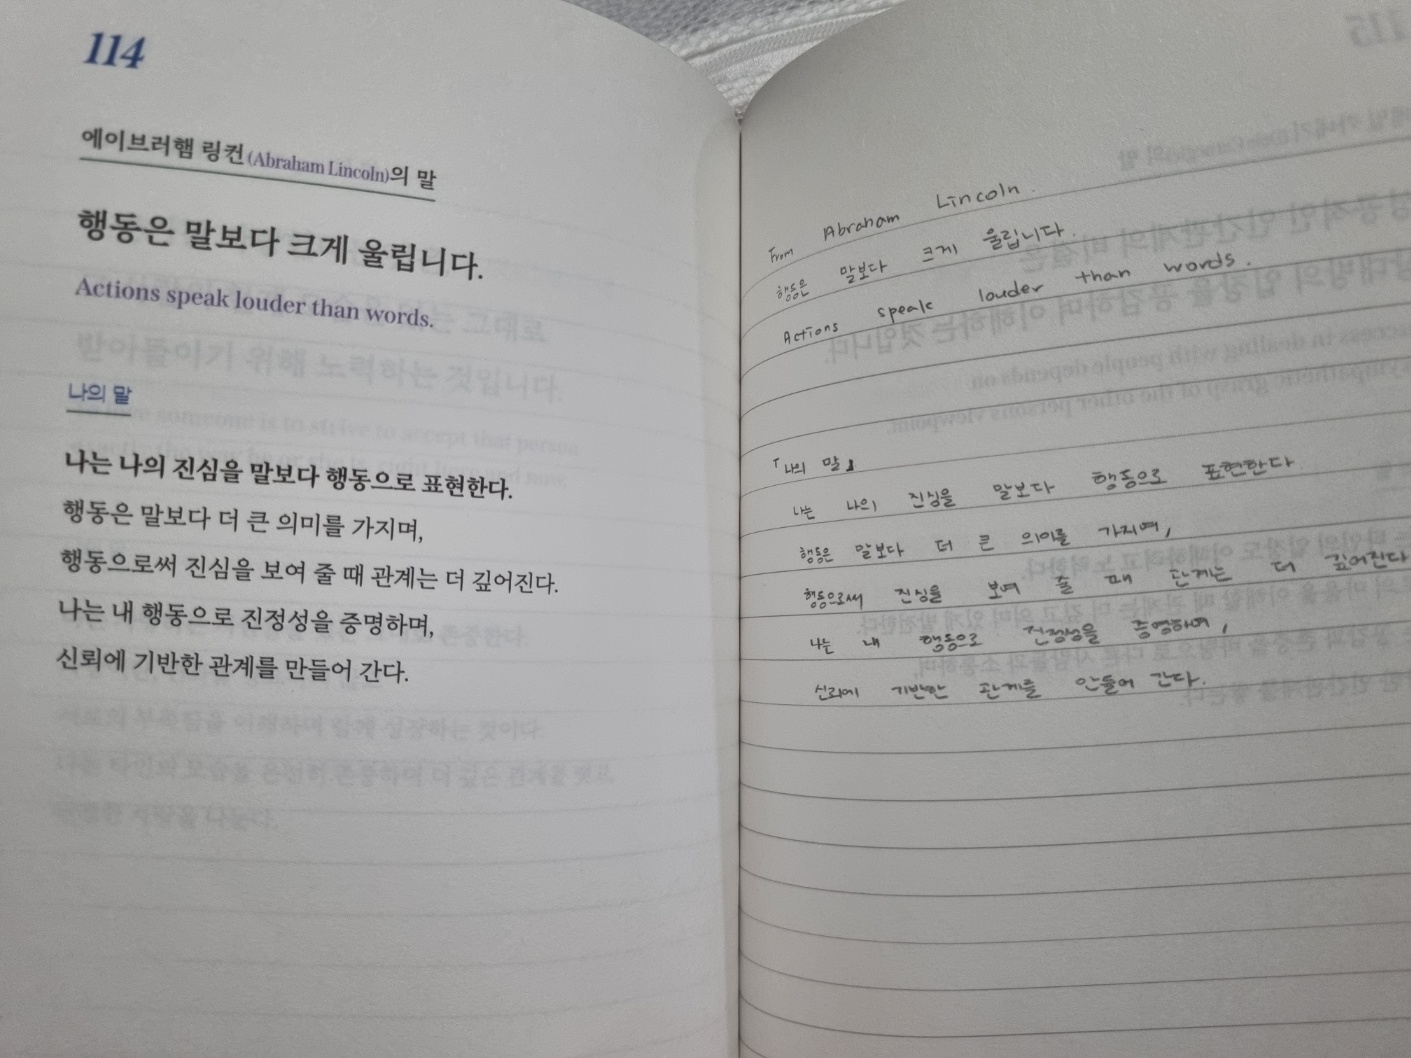 114
에이브러햄 링컨(Abraham Lincoln)의 말
행동은 말보다 크게 울립니다.
Actions speak louder than words.
나의 말
나는 나의 진심을 말보다 행동으로 표현한다.
행동은 말보다 더 큰 의미를 가지며,
행동으로써 진심을 보여 줄 때 관계는 더 깊어진다.
나는 내 행동으로 진정성을 증명하며,
신뢰에 기반한 관계를 만들어 간다.
From Abraham Lincoln.
행동은 말보다 크게 울립니다.
Actions speak louder than words.
「나의 말」
나는 나의 진심을 말보다 행동으로 표현한다.
행동은 말보다 더 큰 의미를 가지며,
행동으로써 진심을 보여 줄 때 관계는 더 깊어진다
나는 내 행동으로 진정성을 증명하며,
신뢰에 기반한 관계를 만들어 간다.